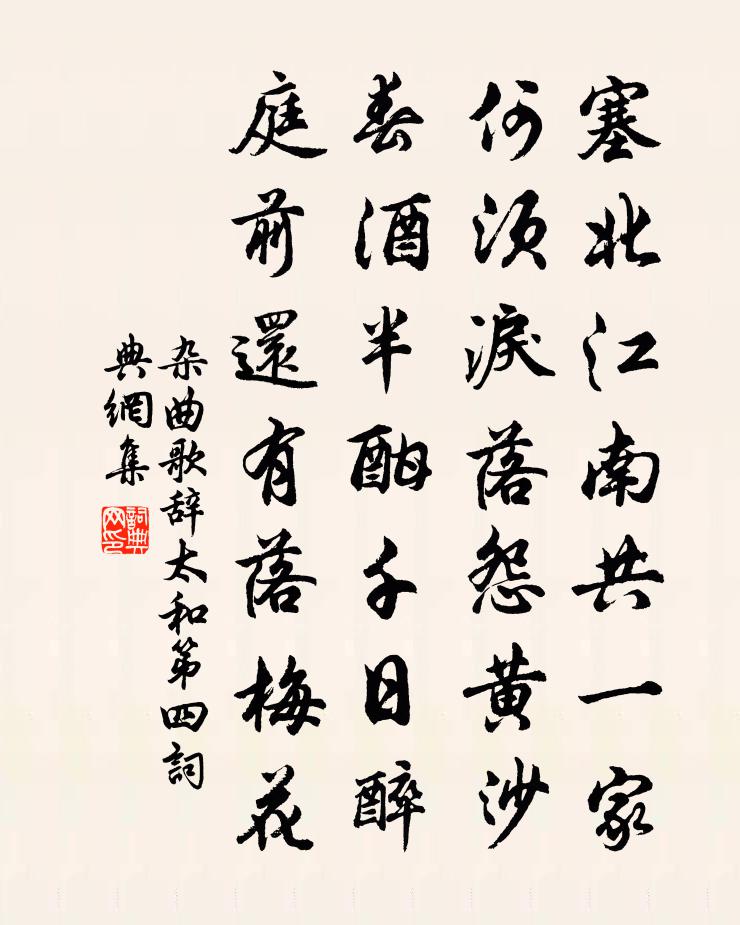 塞北江南共一家
何須淚落怨黃沙
春酒半酣千日醉
庭前還有落梅花
杂曲歌辞太和第四詞
典網集
詞典
网印